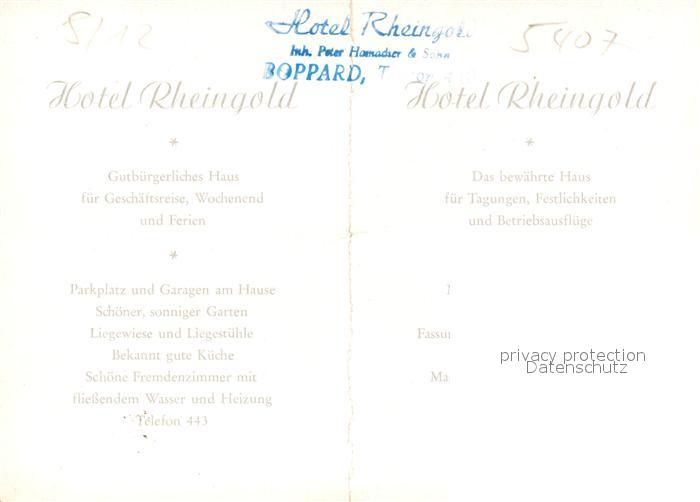 5407
Hotel Rheingold
Inh. Peter & Sohn
BOPPARD,
Hotel Rheingold
*
Gutbürgerliches Haus
für Geschäftsreise, Wochenend
und Ferien
*
Parkplatz und Garagen am Hause
Schöner, sonniger Garten
Liegewiese und Liegestühle
Bekannt gute Küche
Schöne Fremdenzimmer mit
fließendem Wasser und Heizung
Telefon 443
Hotel Rheingold
*
Das bewährte Haus
für Tagungen, Festlichkeiten
und Betriebsausflüge
privacy protection
Datenschutz